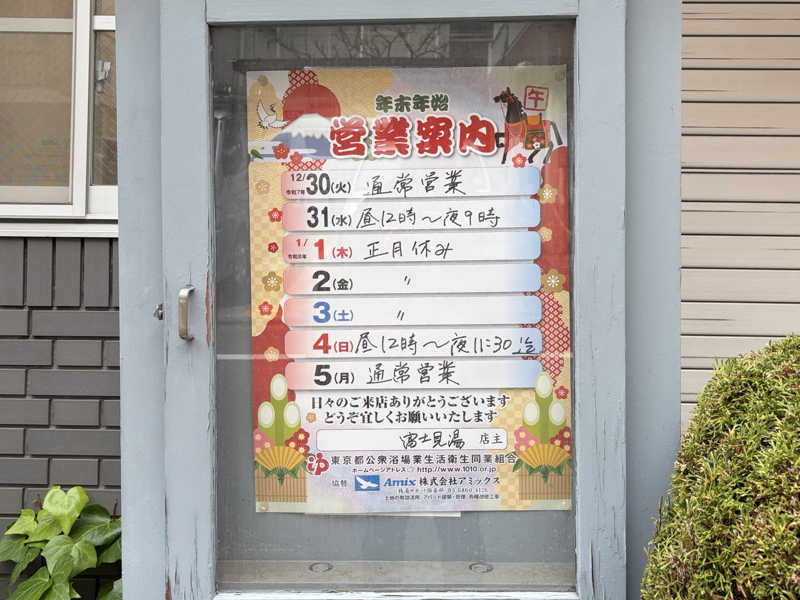 年末年始
営業案内
午
12/30(火) 通常営業
令和7年
31(水) 昼12時〜夜9時
1/1(木) 正月休み
令和8年
2(金) 〃
3(土) 〃
4(日) 昼12時〜夜11:30迄
5(月) 通常営業
日々のご来店ありがとうございます
どうぞ宜しくお願いいたします
富士見湯 店主
東京都公衆浴場業生活衛生同業組合
ホームページアドレス http://www.1010.or.jp
協賛 Amix 株式会社アミックス
土地の有効活用、アパート建築・管理、各種改修工事